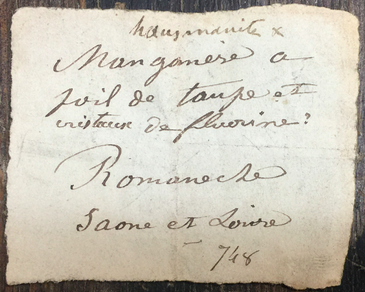 hausmanite x
Manganèse a
poil de taupe et
cristaux de fluorine?
Romaneche
Saone et Loire
748